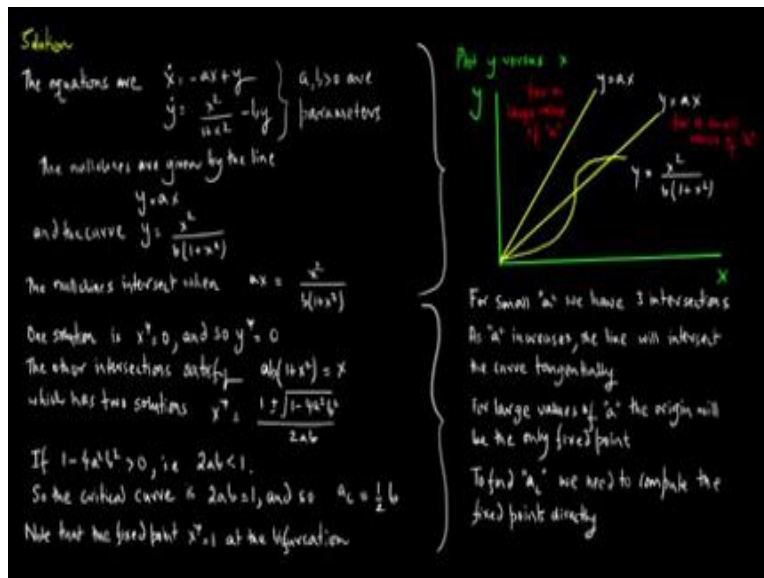 Solution
The equations are ẋ = -ax+y
ẏ = x²/(1+x²) - by
a, b>0 are parameters
The nullclines are given by the line
y=ax
and the curve y = x²/(b(1+x²))
The nullclines intersect when ax = x²/(b(1+x²))
One solution is x*=0, and so y*=0
The other intersections satisfy ab(1+x²) = x
which has two solutions x* = (1±√(1-4a²b²))/(2ab)
If 1-4a²b²>0, i.e 2ab<1.
So the critical curve is 2ab=1, and so a_c = ½ b
Note that the fixed point x*=1 at the bifurcation
Plot y versus x
y
y=ax
for a large value of "a"
y=ax
for a small value of "a"
y = x²/(b(1+x²))
x
For small "a" we have 3 intersections
As "a" increases, the line will intersect
the curve tangentially
For large values of "a" the origin will
be the only fixed point
To find "a_c" we need to compute the
fixed points directly